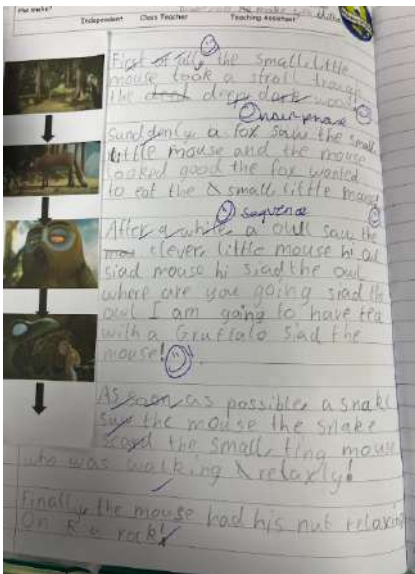 the snake?
Independent Class Teacher Teaching Assistant
First of all, the small, little
mouse took a stroll trouge
the deep, dark wood
Noun phrase
Sunddenly, a fox saw the small
little mouse and the mouse
looked good the fox wanted
to eat the small little mouse
sequence
After a while a owl saw the
clever, little mouse hi
siad mouse hi siad the owl
where are you going siad the
owl I am going to have tea
with a Gruffalo siad the
mouse!
As soon as possible, a snake
saw the mouse the snake
scard the small, ting mouse
who was walking relaxly!
Finally, the mouse had his nut relaxing
On a rock!